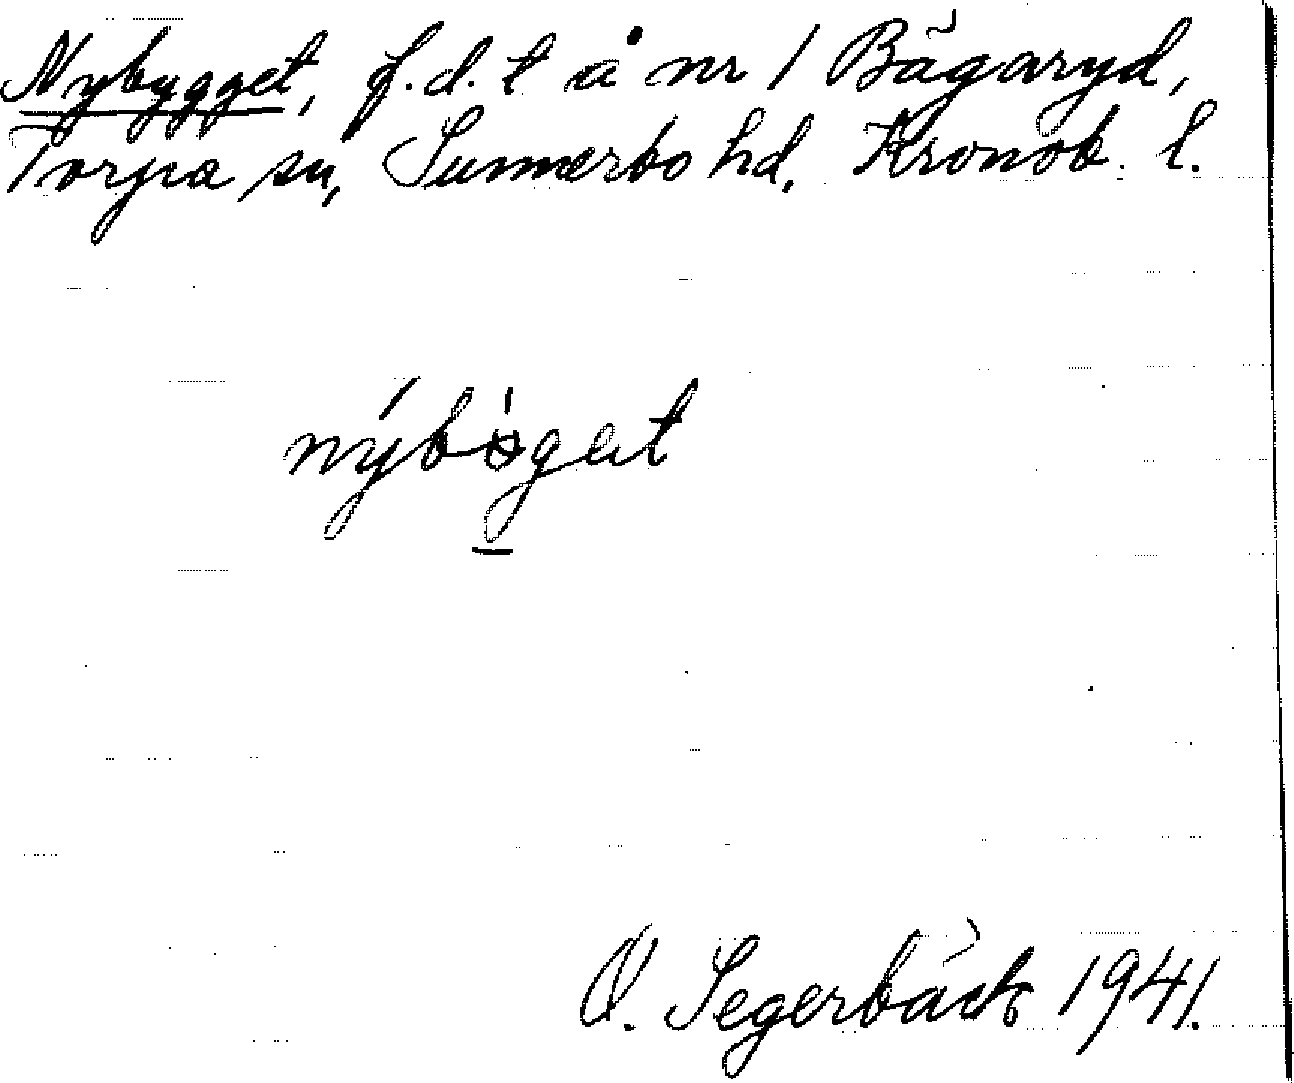 Nybygget, f.d. t å nr 1 Bågaryd,
Torpa sn, Sunnerbo hd, Kronob. l.
O. Segerbäck 1941.